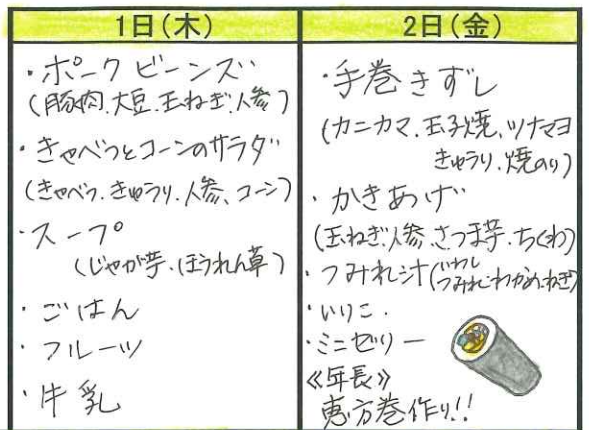 1日(木)
・ポークビーンズ
(豚肉.大豆.玉ねぎ.人参)
・きゃべつとコーンのサラダ
(きゃべつ.きゅうり.人参、コーン)
・スープ
(じゃが芋.ほうれん草)
・ごはん
・フルーツ
・牛乳
2日(金)
・手巻きずし
(カニカマ.玉子焼、ツナマヨ
きゅうり.焼のり)
・かきあげ
(玉ねぎ.人参、さつま芋.ちくわ)
・つみれ汁(いわしつみれ・わかめ、ねぎ)
・いりこ.
・ミニゼリー
≪年長≫
恵方巻作り!!